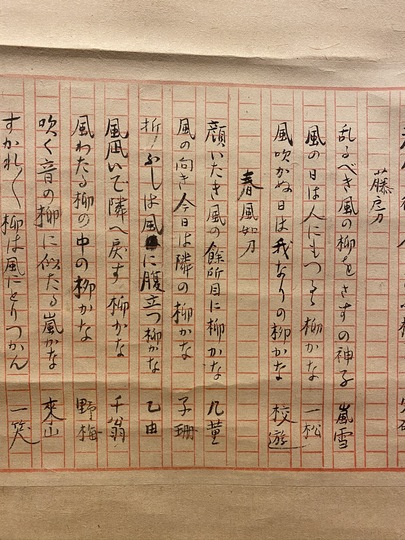 藤房
乱るべき風の柳をさすの神子 嵐雪
風の日は人にもつるゝ柳かな 一松
風吹かぬ日は我なりの柳かな 校遊
春風如刀
顔いたき風の餘所目に柳かな 几董
風の向き今日は隣の柳かな 子珊
折ふしは風に腹立つ柳かな 乙由
風凪いで隣へ戻す柳かな 千翁
風わたる柳の中の柳かな 野梅
吹く音の柳に似たる嵐かな 來山
すかれ〳〵柳は風にとりつかん 一笑